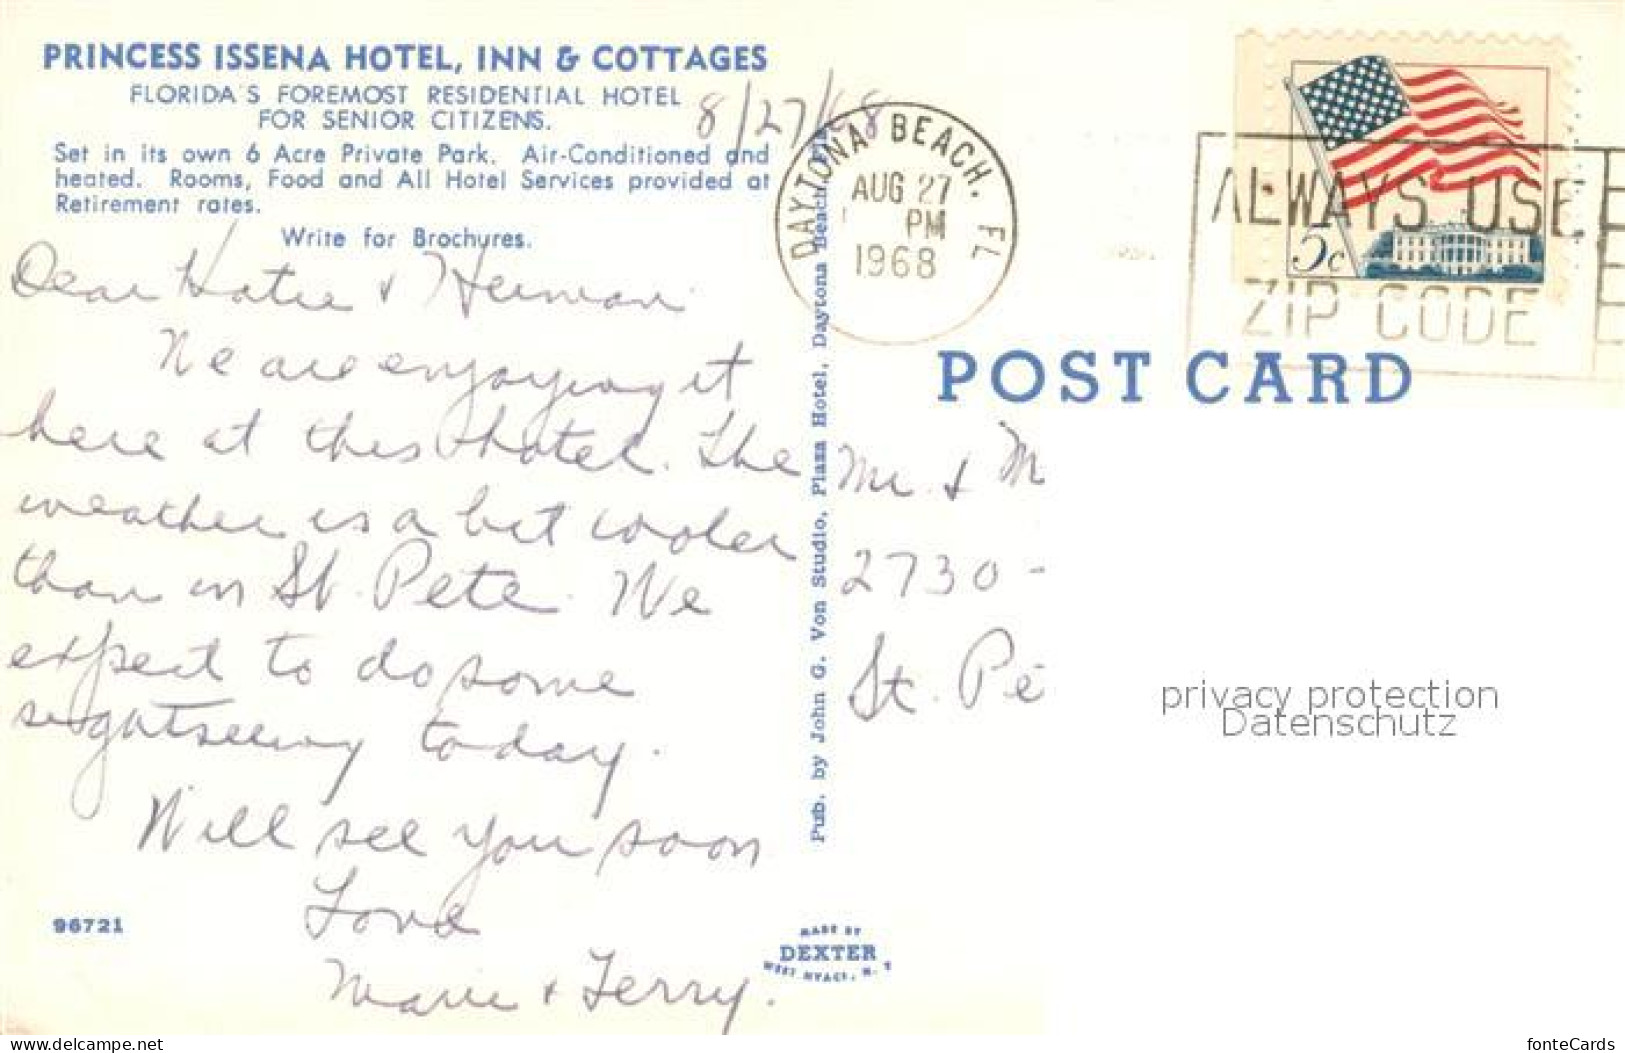 PRINCESS ISSENA HOTEL, INN & COTTAGES
FLORIDA'S FOREMOST RESIDENTIAL HOTEL
FOR SENIOR CITIZENS.
Set in its own 6 Acre Private Park. Air-Conditioned and
heated. Rooms, Food and All Hotel Services provided at
Retirement rates.
Write for Brochures.
8/27/68
Dear Katie & Herman
We are enjoying it
here at this hotel. The
weather is a bit cooler
than in St. Pete. We
expect to do some
sightseeing today.
Will see you soon
Love
Marie & Terry.
96721
Pub. by John G. Von Studio, Plaza Hotel, Daytona Beach, Fla.
MADE BY
DEXTER
WEST NYACK, N. Y.
DAYTONA BEACH, FL
AUG 27
PM
1968
ALWAYS USE
ZIP CODE
5c
POST CARD
Mr. & M
2730 -
St. Pe
privacy protection
Datenschutz
www.delcampe.net
fonteCards